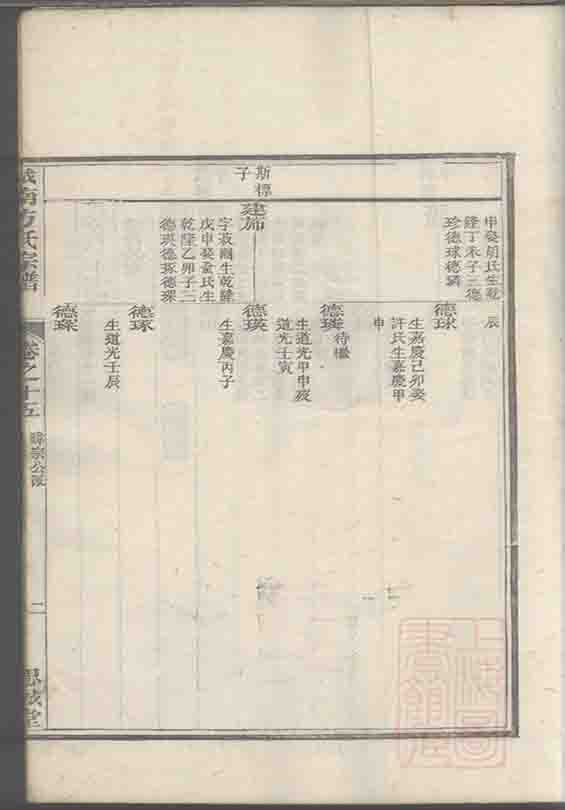 申娶胡氏生乾
隆丁未子三德
珍德球德璘
斯標
子
建斾
字敘爾生乾隆
戊申娶金氏生
乾隆乙卯子三
德瑛德琢德琛
辰
德球
生嘉慶己卯娶
許氏生嘉慶甲
申
德璘
待繼
生道光甲申歿
道光壬寅
德瑛
生嘉慶丙子
德琢
生道光壬辰
德琛
城南方氏宗譜
卷之十五
宗公派
二
思敬堂
上海圖
書館藏